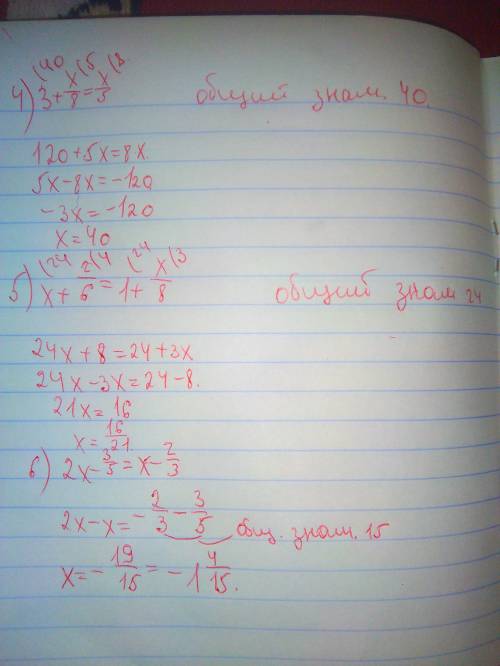 (40 (5 (8
4) 3 + x/8 = x/5 общий знам. 40.
120 + 5x = 8x.
5x - 8x = -120
-3x = -120
x = 40
(24 (4 (24 (3
5) x + 2/6 = 1 + x/8 общий знам 24
24x + 8 = 24 + 3x
24x - 3x = 24 - 8.
21x = 16
x = 16/21.
6) 2x - 3/5 = x - 2/3
2x - x = - 2/3 - 3/5 общ. знам. 15
x = - 19/15 = - 1 4/15.